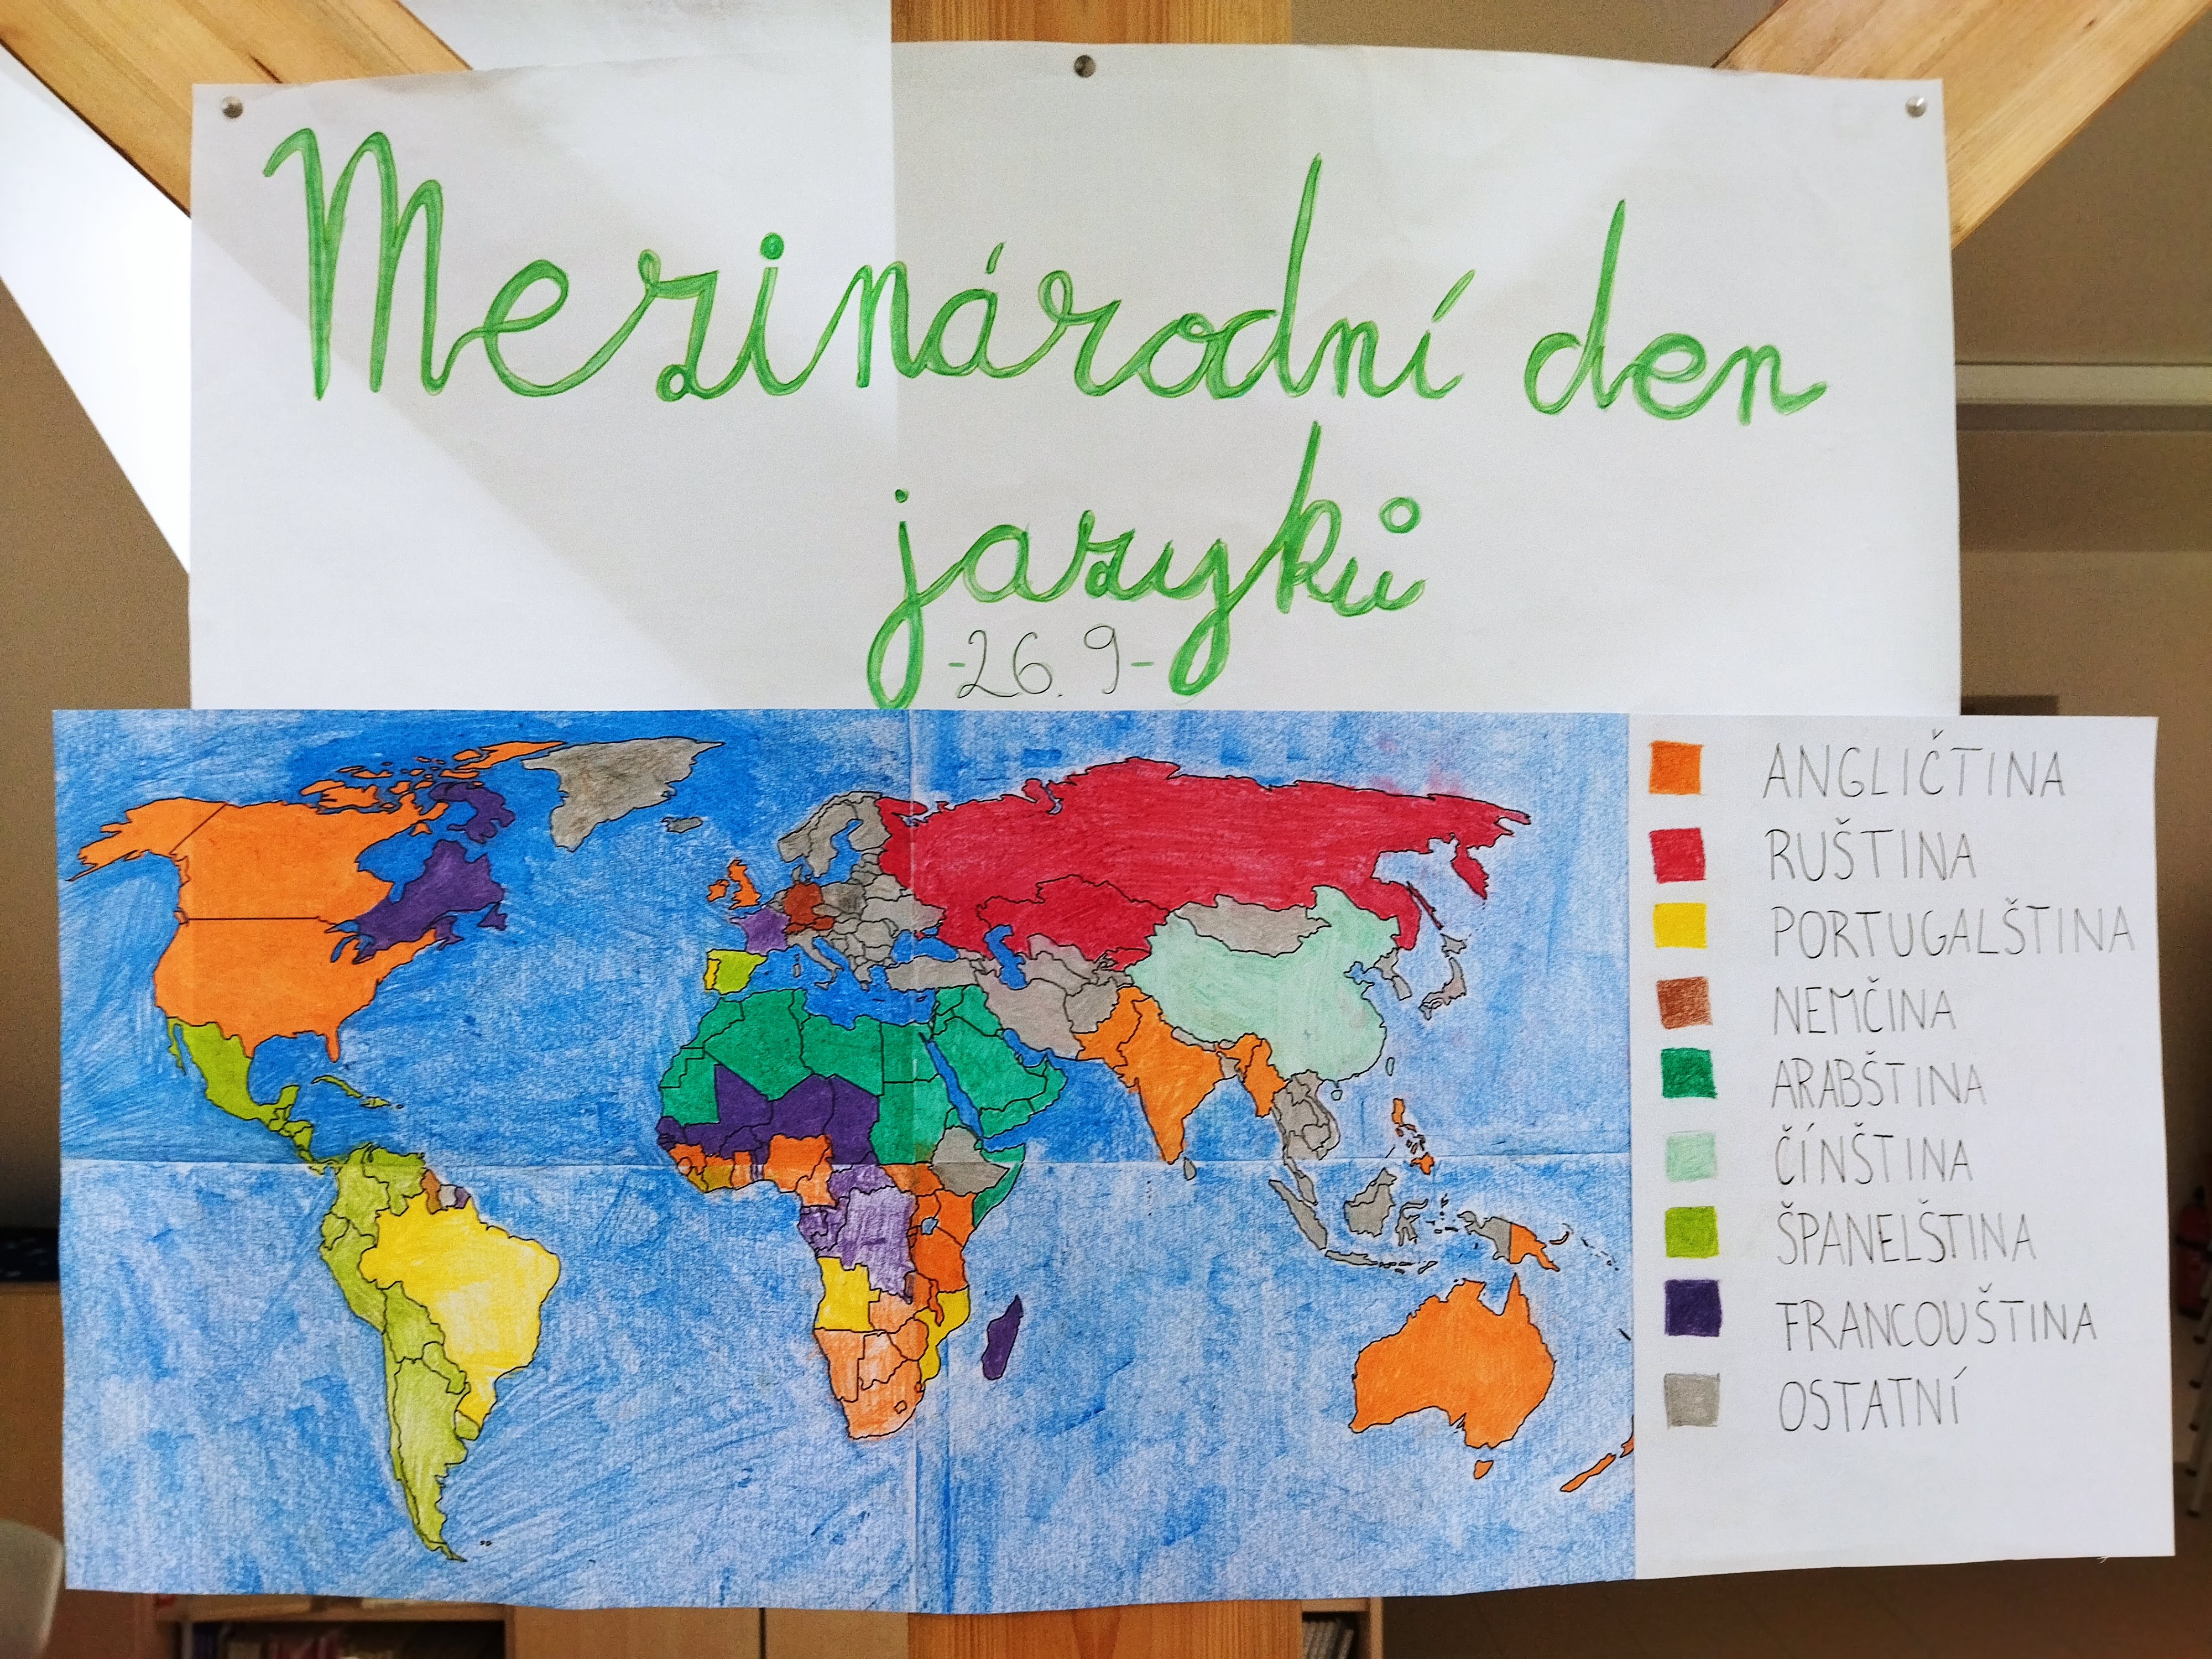 Mezinárodní den
jazyků
-26.9-
ANGLIČTINA
RUŠTINA
PORTUGALŠTINA
NEMČINA
ARABŠTINA
ČÍNŠTINA
ŠPANELŠTINA
FRANCOUŠTINA
OSTATNÍ